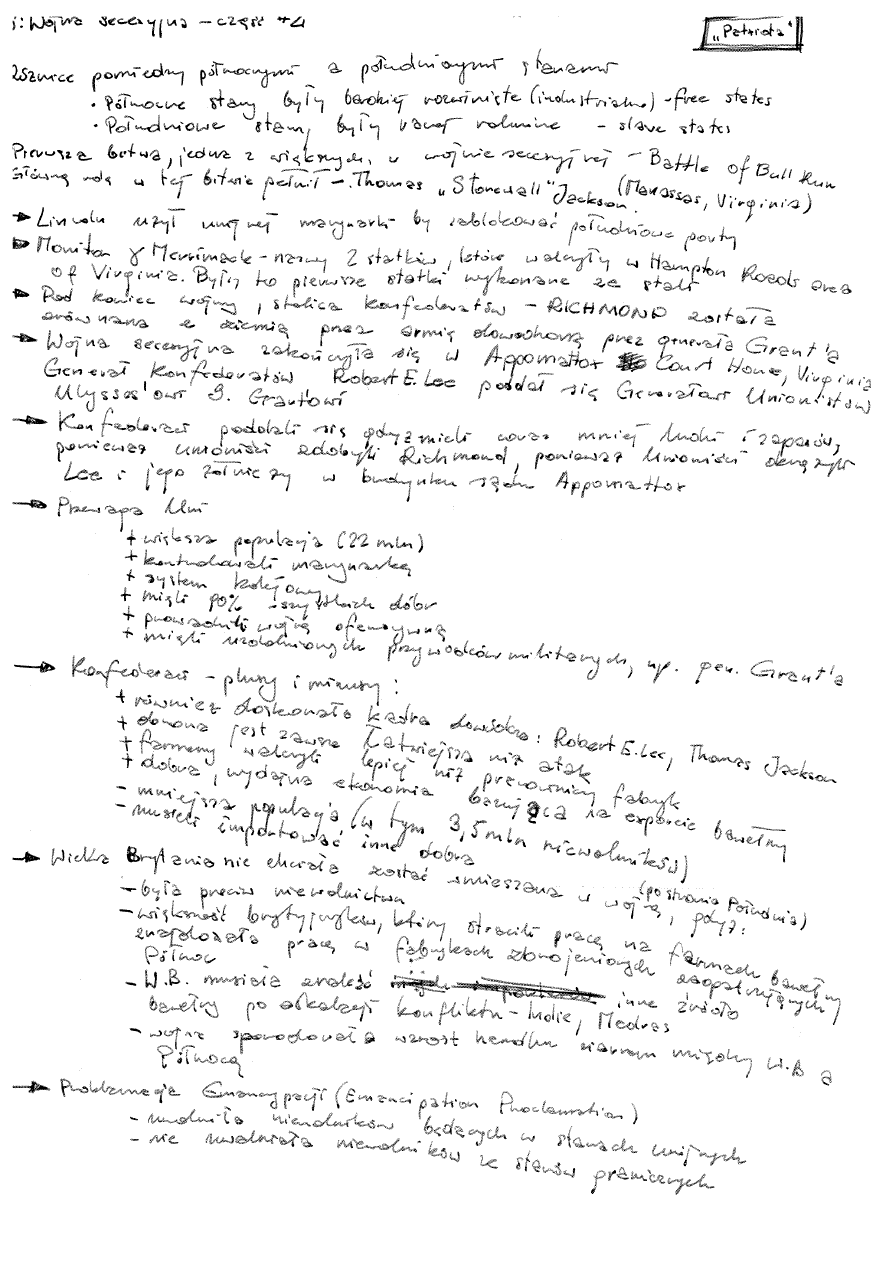 : Wojna secesyjna – część #4
„Patriota"
Różnice pomiędzy północnymi a południowymi stanami
• Północne stany były bardziej rozwinięte (industrialne) – free states
• Południowe stany były raczej rolnicze – slave states
Pierwsza bitwa, jedna z większych, w wojnie secesyjnej – Battle of Bull Run
Główną rolę w tej bitwie pełnił – Thomas „Stonewall" Jackson. (Manassas, Virginia)
→ Lincoln użył unijnej marynarki by zablokować południowe porty
→ Monitor & Merrimack – nazwy 2 statków, które walczyły w Hampton Roads area
of Virginia. Były to pierwsze statki wykonane ze stali
→ Pod koniec wojny, stolica Konfederatów – RICHMOND została
zrównana z ziemią przez armię dowodzoną przez generała Grant'a
→ Wojna secesyjna zakończyła się w Appomattox Court House, Virginia
Generał Konfederatów Robert E. Lee poddał się Generałowi Unionistów
Ulysses'owi S. Grantowi
→ Konfederaci poddali się gdyż mieli coraz mniej ludzi i zapasów,
ponieważ unioniści zdobyli Richmond, ponieważ Unioniści okrążyli
Lee i jego żołnierzy w budynku sądu Appomattox
→ Przewaga Unii
+ większa populacja (22 mln)
+ kontrolowali marynarkę
+ system kolejowy
+ mieli 90% wszystkich dóbr
+ prowadzili wojnę ofensywną
+ mieli uzdolnionych przywódców militarnych, np. gen. Grant'a
→ Konfederaci – plusy i minusy:
+ również doskonała kadra dowódcza: Robert E. Lee, Thomas Jackson
+ obrona jest zawsze łatwiejsza niż atak
+ farmerzy walczyli lepiej niż pracownicy fabryk
+ dobra, wydajna ekonomia bazująca na exporcie bawełny
– mniejsza populacja (w tym 3,5 mln niewolników)
– musieli importować inne dobra
→ Wielka Brytania nie chciała zostać wmieszana w wojnę, (po stronie Południa) gdyż:
– była przeciw niewolnictwu
– większość brytyjczyków, którzy stracili pracę na farmach bawełny
znajdowała pracę w fabrykach zbrojeniowych zaopatrujących
Północ
– W.B. musiała znaleźć inne źródło
bawełny po eskalacji konfliktu – Indie, Madras
– wojna spowodowała wzrost handlu ziarnem między W.B a
Północą
→ Proklamacja Emancypacji (Emancipation Proclamation)
– uwolniła niewolników będących w stanach unijnych
– nie uwalniała niewolników ze stanów granicznych